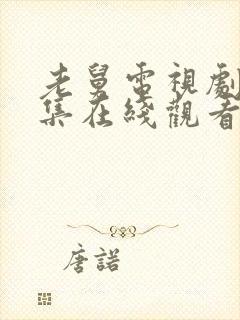 老舅電視劇
集在綫觀看
唐諾